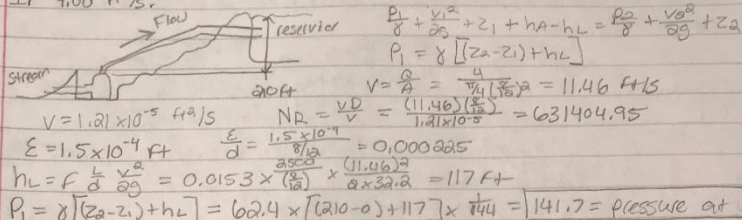 4.00 ft³/s.
Flow
reservior
Stream
210ft
P₁/γ + V₁²/2g + Z₁ + hA - hL = P₂/γ + V₂²/2g + Z₂
P₁ = γ[(Z₂-Z₁)+hL]
V = Q/A = 4/(π/4(8/12)²) = 11.46 ft/s
V = 1.21×10⁻⁵ ft²/s
NR = VD/V = (11.46)(8/12)/1.21×10⁻⁵ = 631404.95
ε = 1.5×10⁻⁴ ft
ε/d = 1.5×10⁻⁴/(8/12) = 0.000225
hL = F L/d V²/2g = 0.0153 × 2500/(8/12) × (11.46)²/(2×32.2) = 117 ft
P₁ = γ[(Z₂-Z₁)+hL] = 62.4 × [(210-0)+117] × 1/144 = 141.7 = pressure at